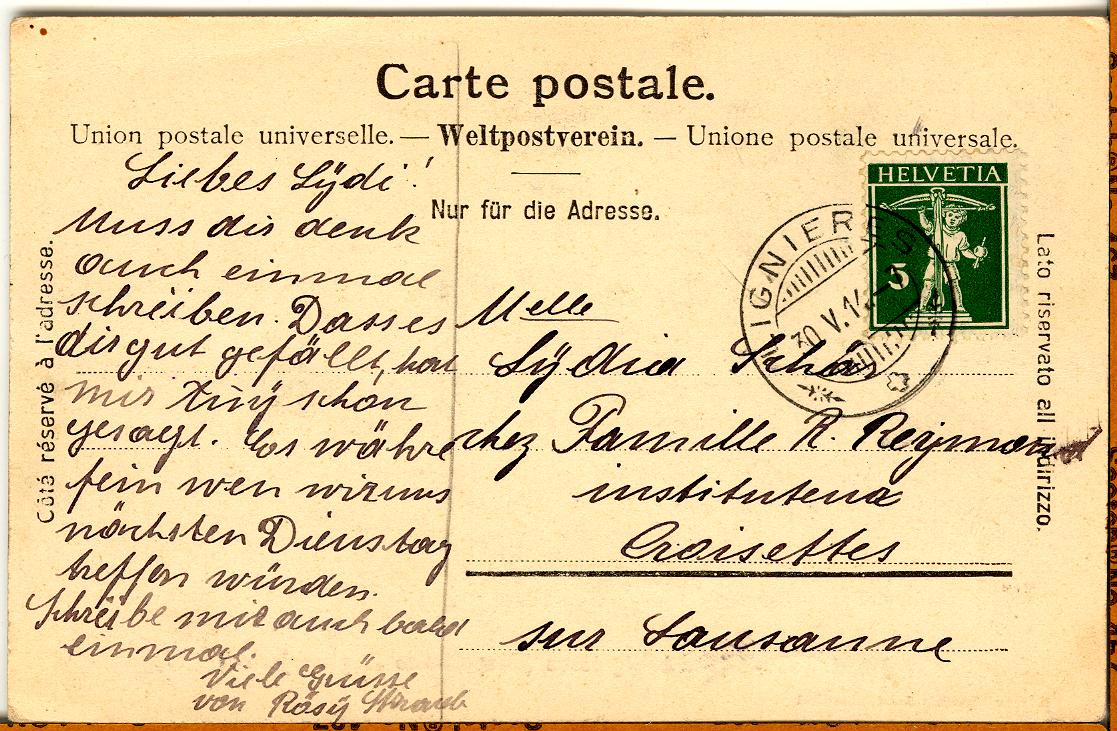 Carte postale.
Union postale universelle. — Weltpostverein. — Unione postale universale.
Nur für die Adresse.
Côté réservé à l'adresse.
Lato riservato all indirizzo.
HELVETIA
5
LIGNIERES
30 V. 1
Liebes Lÿdi!
Muss dir denk
auch einmal
schreiben. Dass es
dir gut gefällt, hat
mir schon
gesagt. Es währe
fein wen wir uns
nächsten Dienstag
treffen würden.
Schreibe mir auch bald
einmal.
Viele Grüsse
von Rösy Straub
Melle
Lÿdia Schär
chez Famille R. Reymond
Croisettes
sur Lausanne